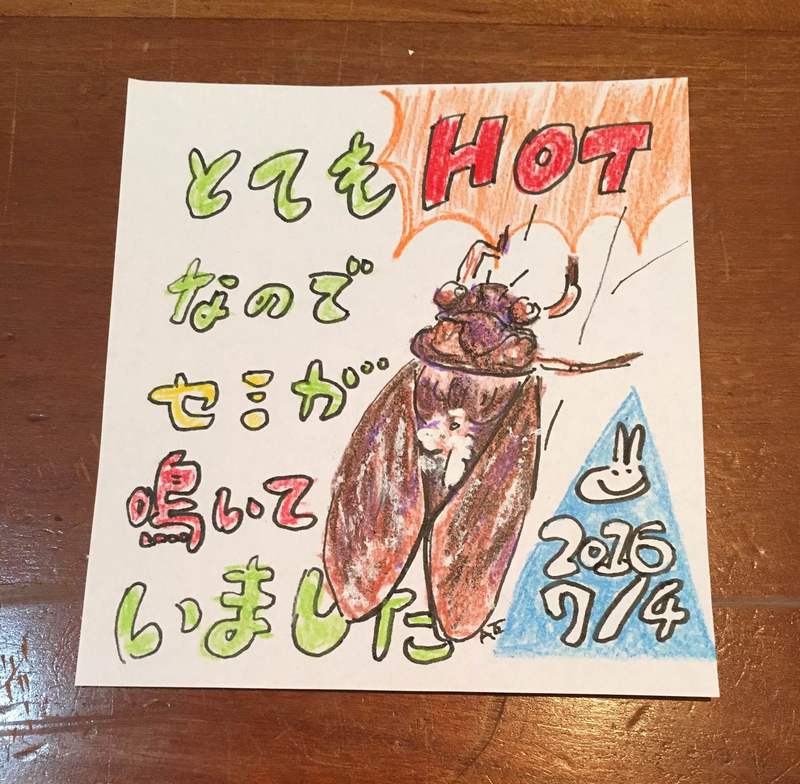 とても HOT
なので
セミが
鳴いて
いました
2016
7/4